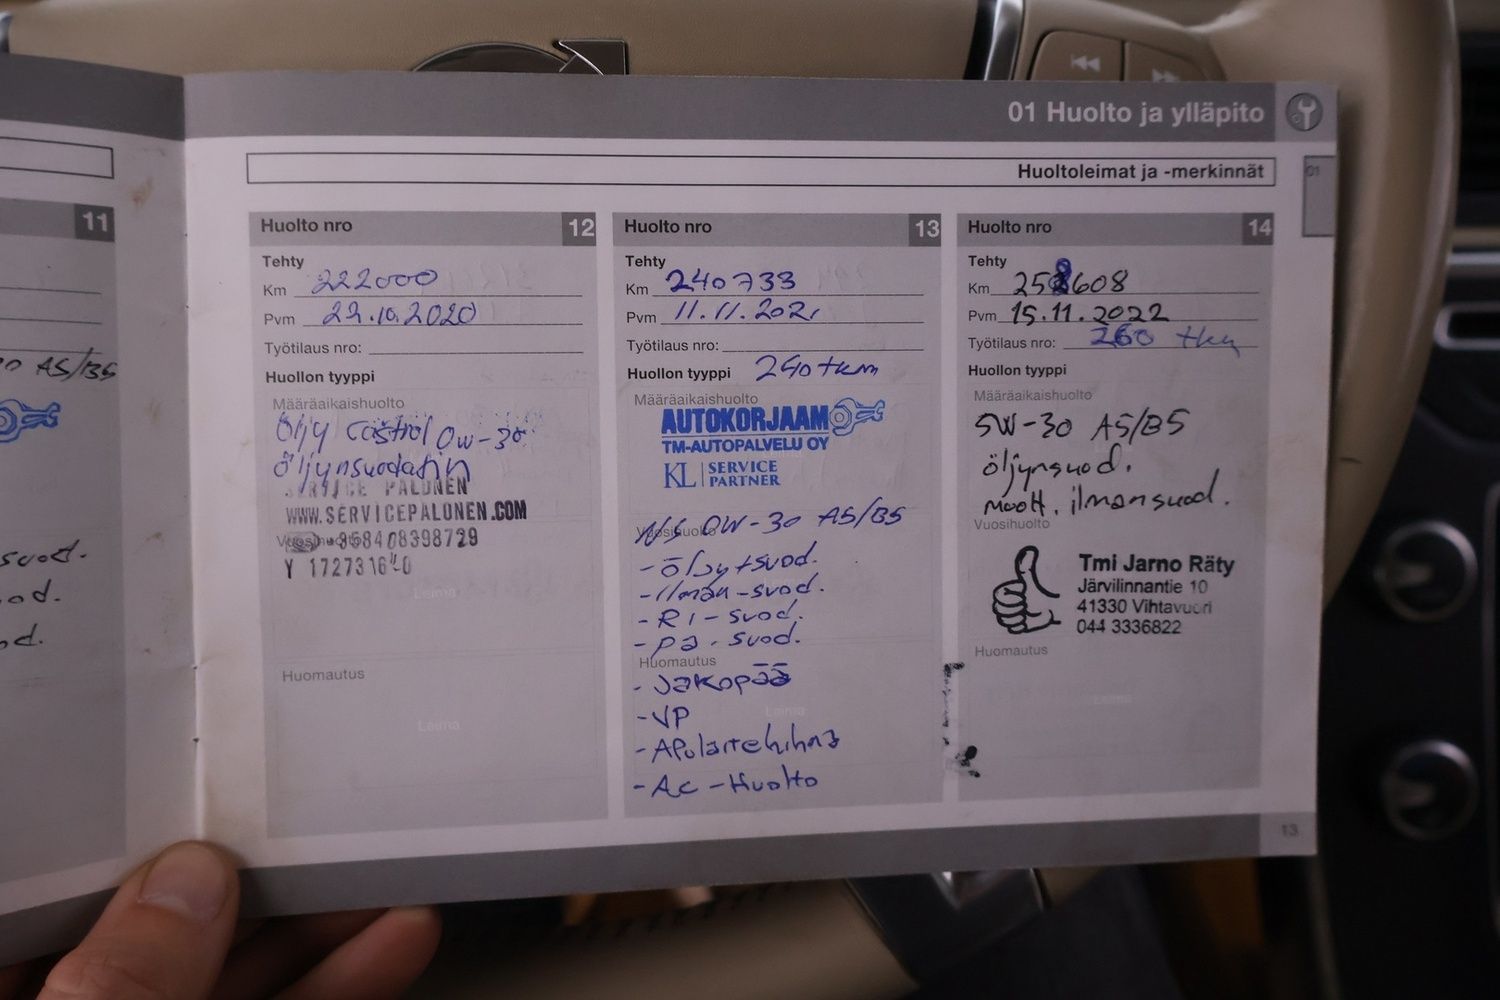 01 Huolto ja ylläpito
Huoltoleimat ja -merkinnät
01
11
AS/B5
suod.
od.
d.
Huolto nro 12
Tehty
Km 222000
Pvm 22.10.2020
Työtilaus nro:
Huollon tyyppi
Määräaikaishuolto
Öljy castrol 0w-30
öljynsuodatin
SERVICE PALONEN
WWW.SERVICEPALONEN.COM
Vuosihuolto +358408398729
Y 1727316-0
Leima
Huomautus
Leima
Huolto nro 13
Tehty
Km 240733
Pvm 11.11.2021
Työtilaus nro:
Huollon tyyppi 240 tkm
Määräaikaishuolto
AUTOKORJAAM
TM-AUTOPALVELU OY
KL SERVICE
PARTNER
0W-30 A5/B5
Vuosihuolto
- öljy+suod.
- ilman-suod.
- RI-suod.
- pa-suod.
Huomautus
- Jakopää
- VP
Leima
- Apulaitehihna
- AC-Huolto
Huolto nro 14
Tehty
Km 258608
Pvm 15.11.2022
Työtilaus nro: 260 tkm
Huollon tyyppi
Määräaikaishuolto
5W-30 A5/B5
öljynsuod.
moott. ilmansuod.
Vuosihuolto
Tmi Jarno Räty
Järvilinnantie 10
41330 Vihtavuori
044 3336822
Huomautus
Leima
13